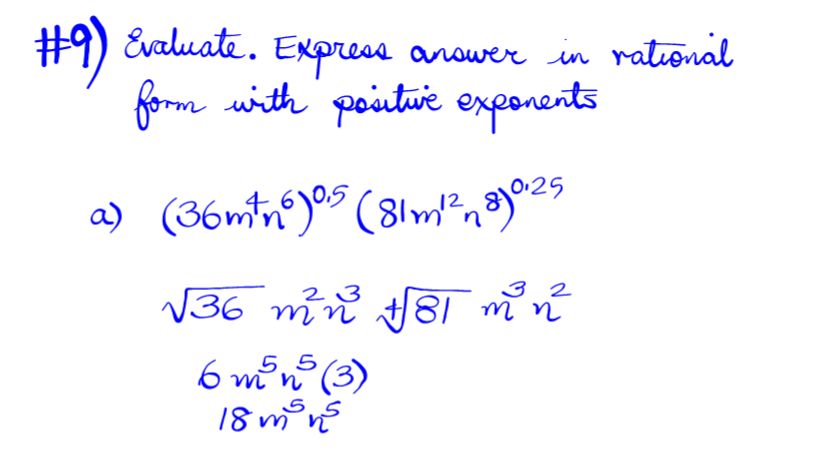 #9) Evaluate. Express answer in rational
form with positive exponents
a) (36m⁴n⁶)^0.5 (81m¹²n⁸)^0.25
√36 m²n³ ∜81 m³n²
6m⁵n⁵(3)
18m⁵n⁵